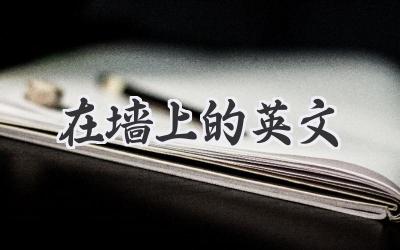 在墙上的英文